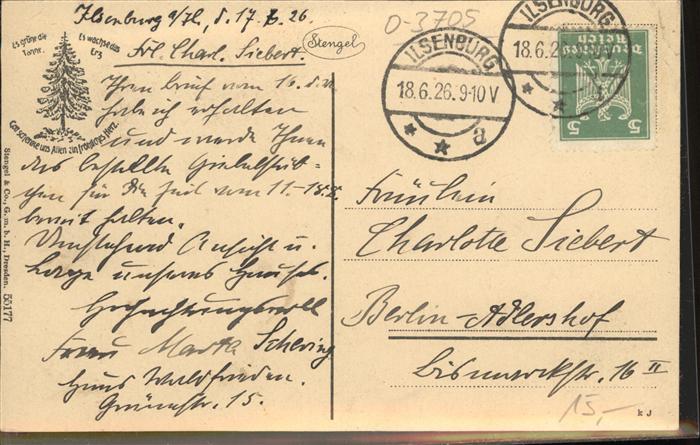 Ilsenburg a/H., d. 17.6.26.
Es grüne die
Tanne.
Es wachse das
Erz
Gott schenke uns Allen ein fröhliches Herz.
Stengel
Frl. Charl. Siebert.
Ihren Brief vom 16. d. M.
habe ich erhalten
und werde Ihnen
das bestellte Giebelstüb-
chen für die Zeit vom 11.-18.
bereit halten.
Umstehend Ansicht u.
Lage unseres Hauses.
Hochachtungsvoll
Frau Martha Schering
Haus Waldfrieden.
Grünestr. 15.
Stengel & Co., G. m. b. H., Dresden. 55177
0-3705
ILSENBURG
18.6.26.9-10V
a
ILSENBURG
18.6.26
V
Deutsches
Reich
5 5
Fräulein
Charlotte Siebert
Berlin-Adlershof
Bismarckstr. 16 II
15,-
k J